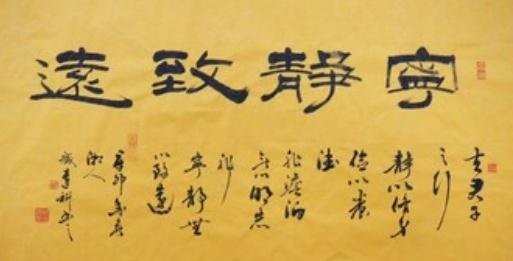 寧靜致遠
夫君子
之行
靜以修身
儉以養
德
非澹泊
無以明志
非
寧靜無
以致遠
辛卯年春
湘人
書